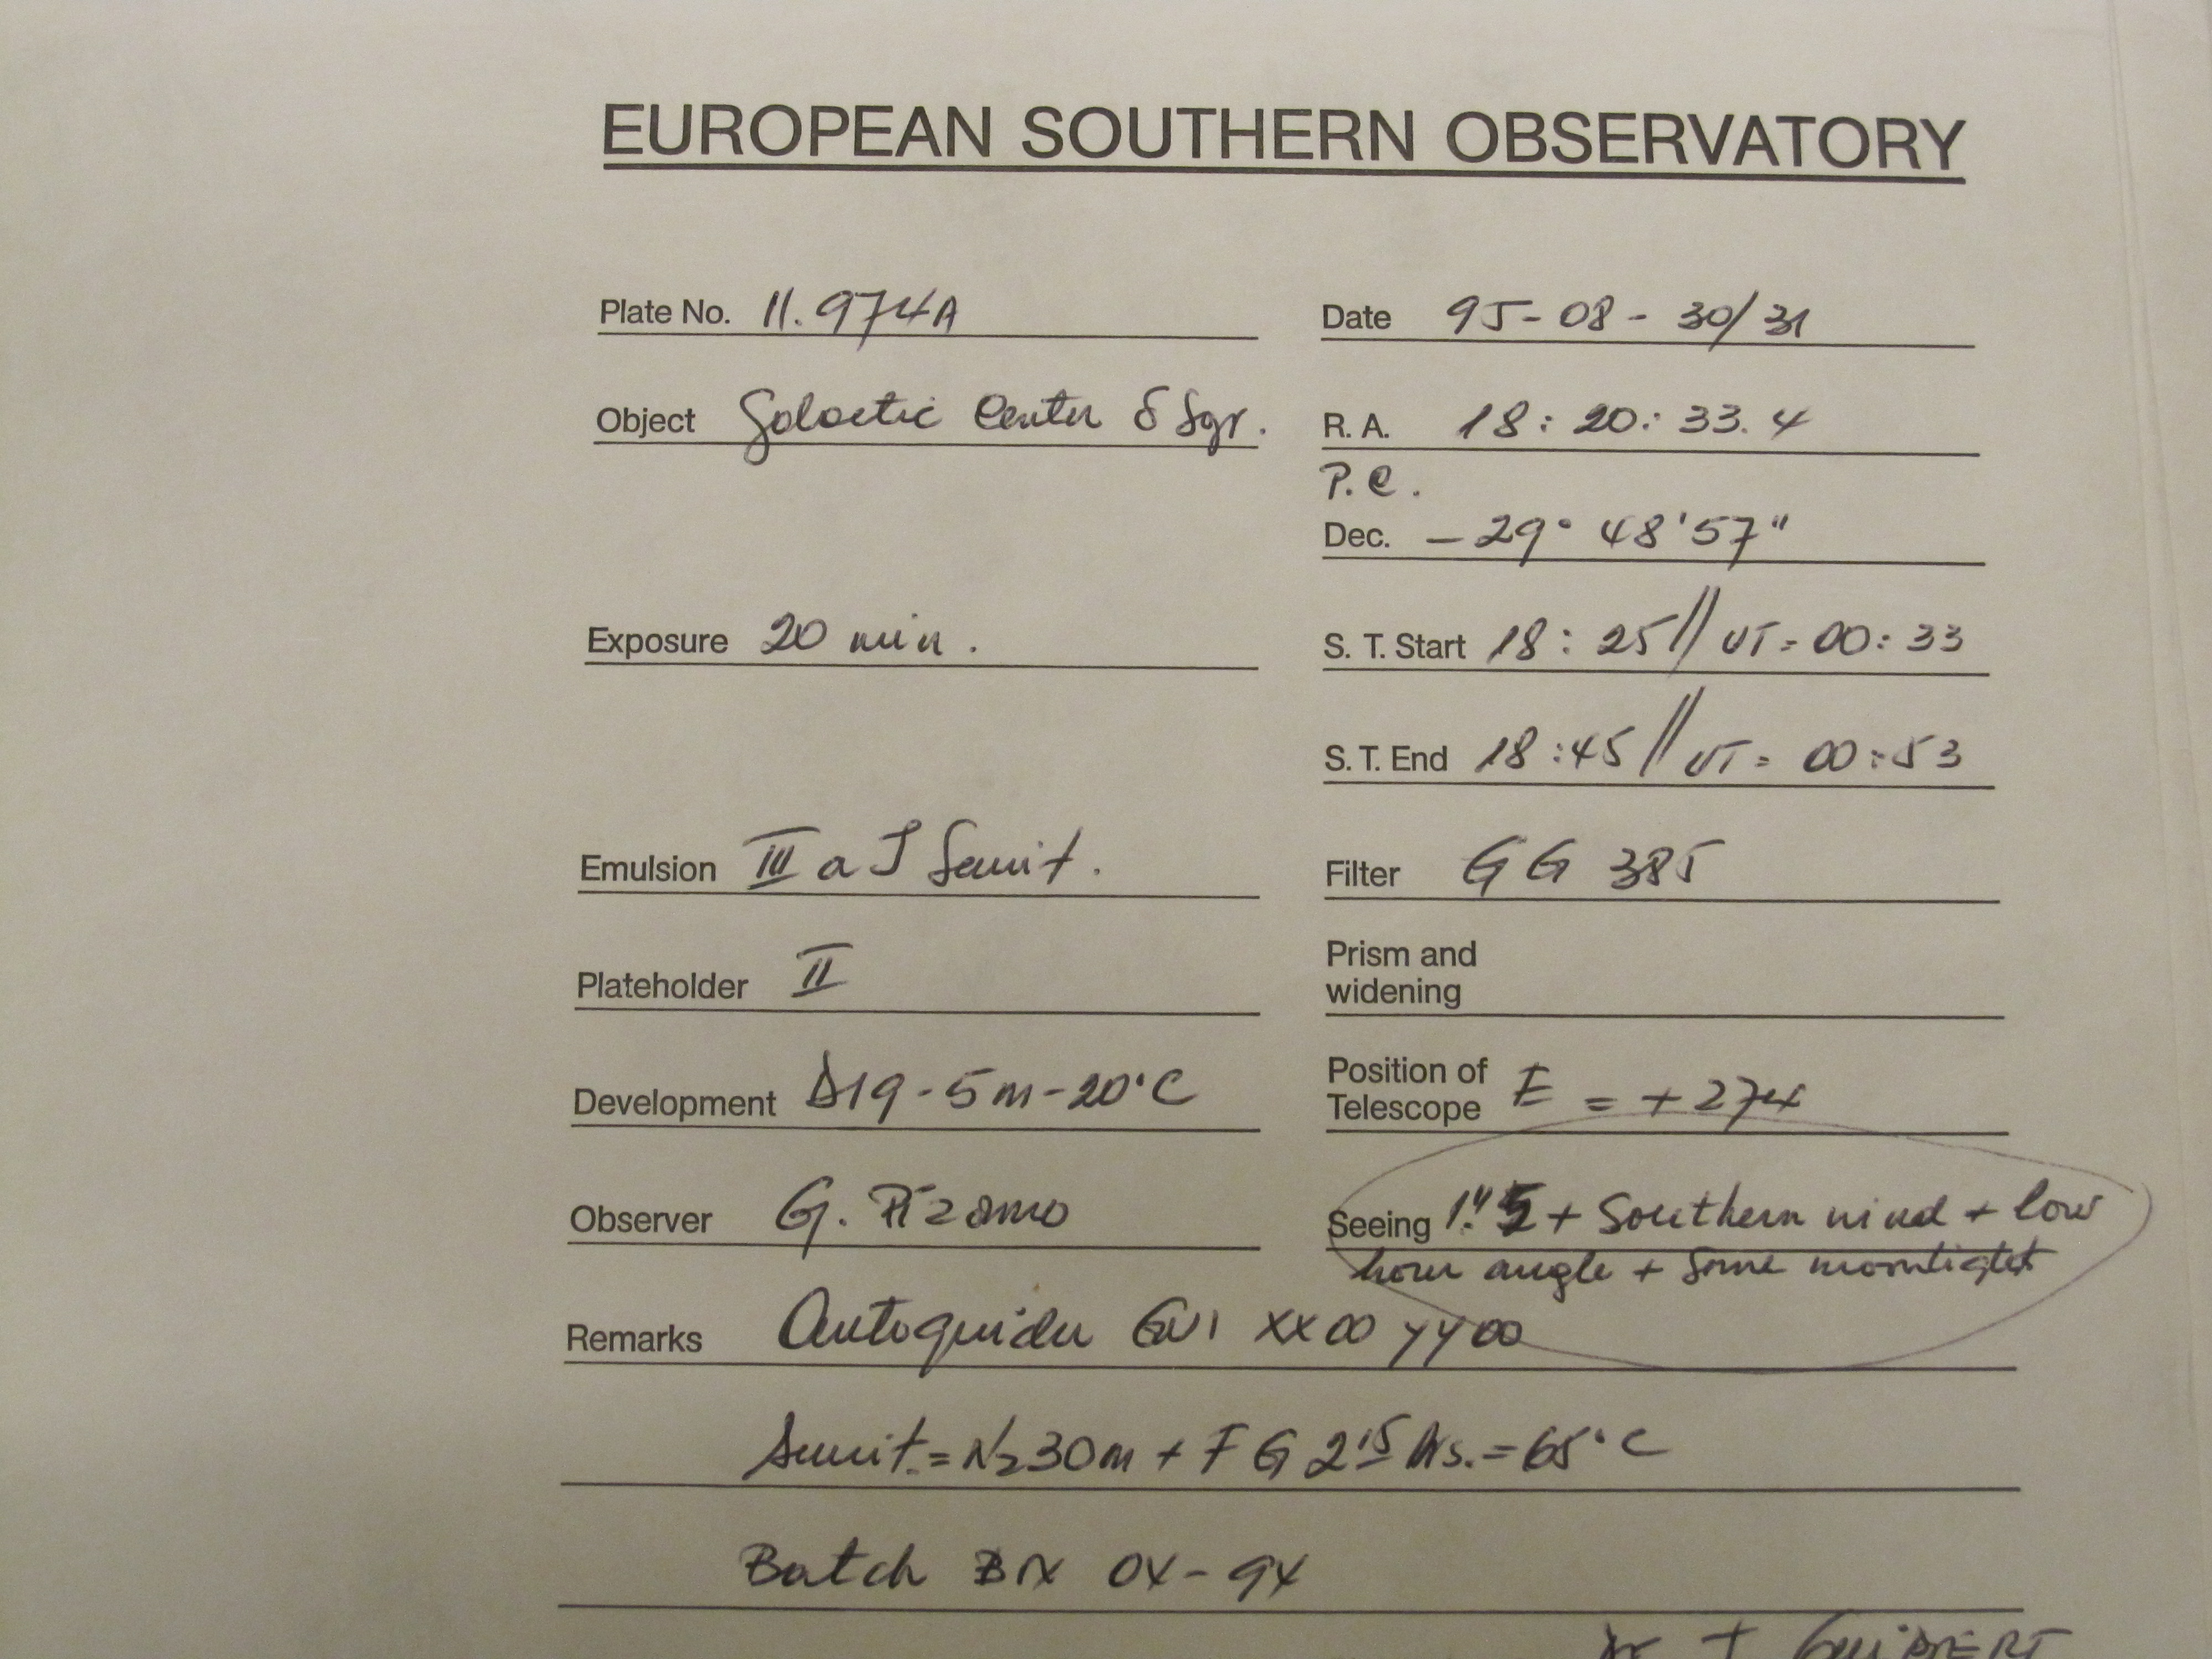 EUROPEAN SOUTHERN OBSERVATORY
Plate No. 11.974A
Date 95-08-30/31
Object Galactic Center δ Sgr.
R. A. 18:20:33.4
P.C.
Dec. -29° 48'57"
Exposure 20 min.
S. T. Start 18:25 // UT=00:33
S. T. End 18:45 // UT=00:53
Emulsion III a J Sensit.
Filter GG 385
Plateholder II
Prism and
widening
Development D19-5m-20°C
Position of
Telescope E = +274
Observer G. Pizarro
Seeing 1."5 + Southern wind + low
hour angle + some moonlight
Remarks Autoguider GUI XX00 YY00
Sensit.=N2 30m + F G 2 15 hs.=65°C
Batch